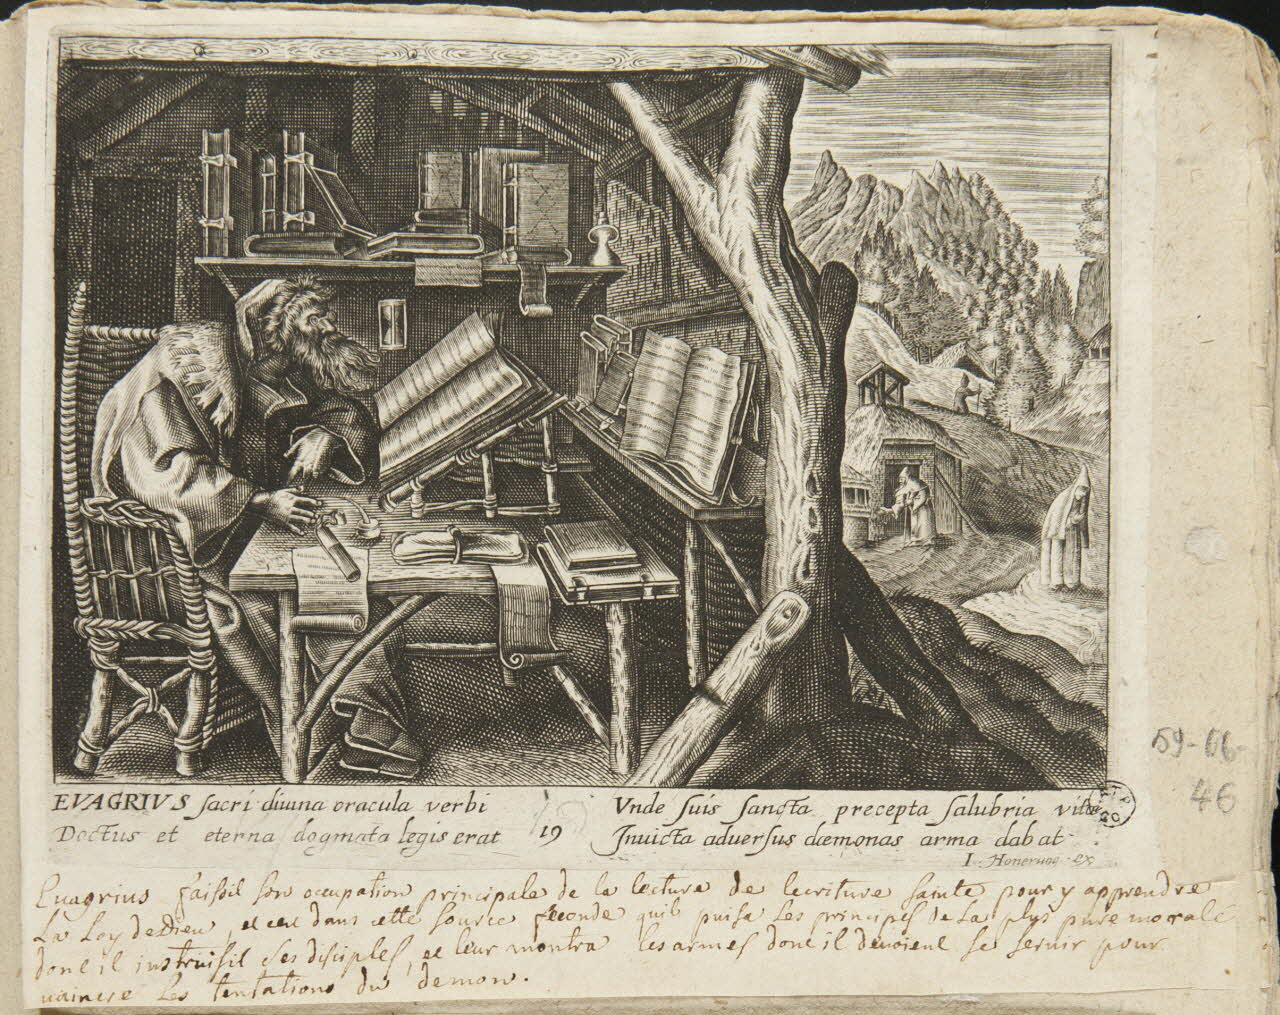 EVAGRIVS sacri diuina oracula verbi
Doctus et eterna dogmata legis erat
19
Vnde suis sancta precepta salubria vitæ
Inuicta aduersus dæmonas arma dabat
I. Honeruog ex
Evagrius faisoit son occupation principale de la lecture de lecriture sainte pour y apprendre
La Loy de Dieu, et cest dans cette source feconde quil puisa les principes de La plus pure morale
dont il instruisit ses disciples, et leur montra les armes dont il devoient se servir pour
vaincre les tentations du demon.
59-66-
46